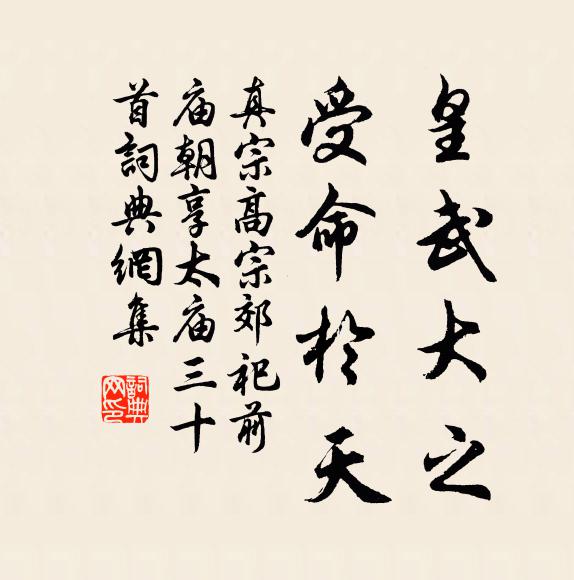 皇武大之
受命於天
真宗高宗郊祀前
庙朝享太庙三十
首詞典網集
詞典
网印